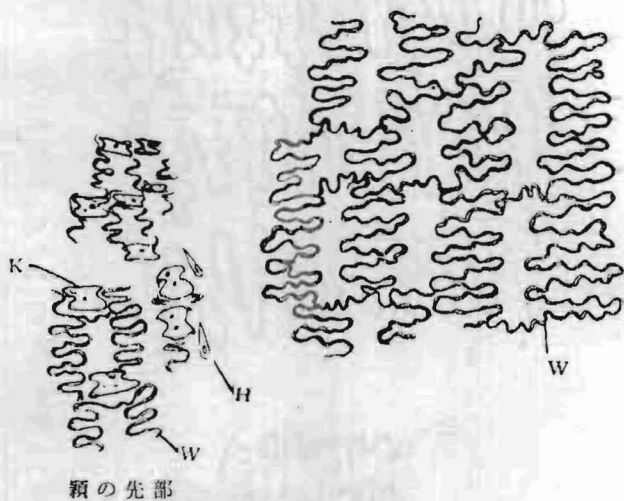 K
H
W
W
穎の先部